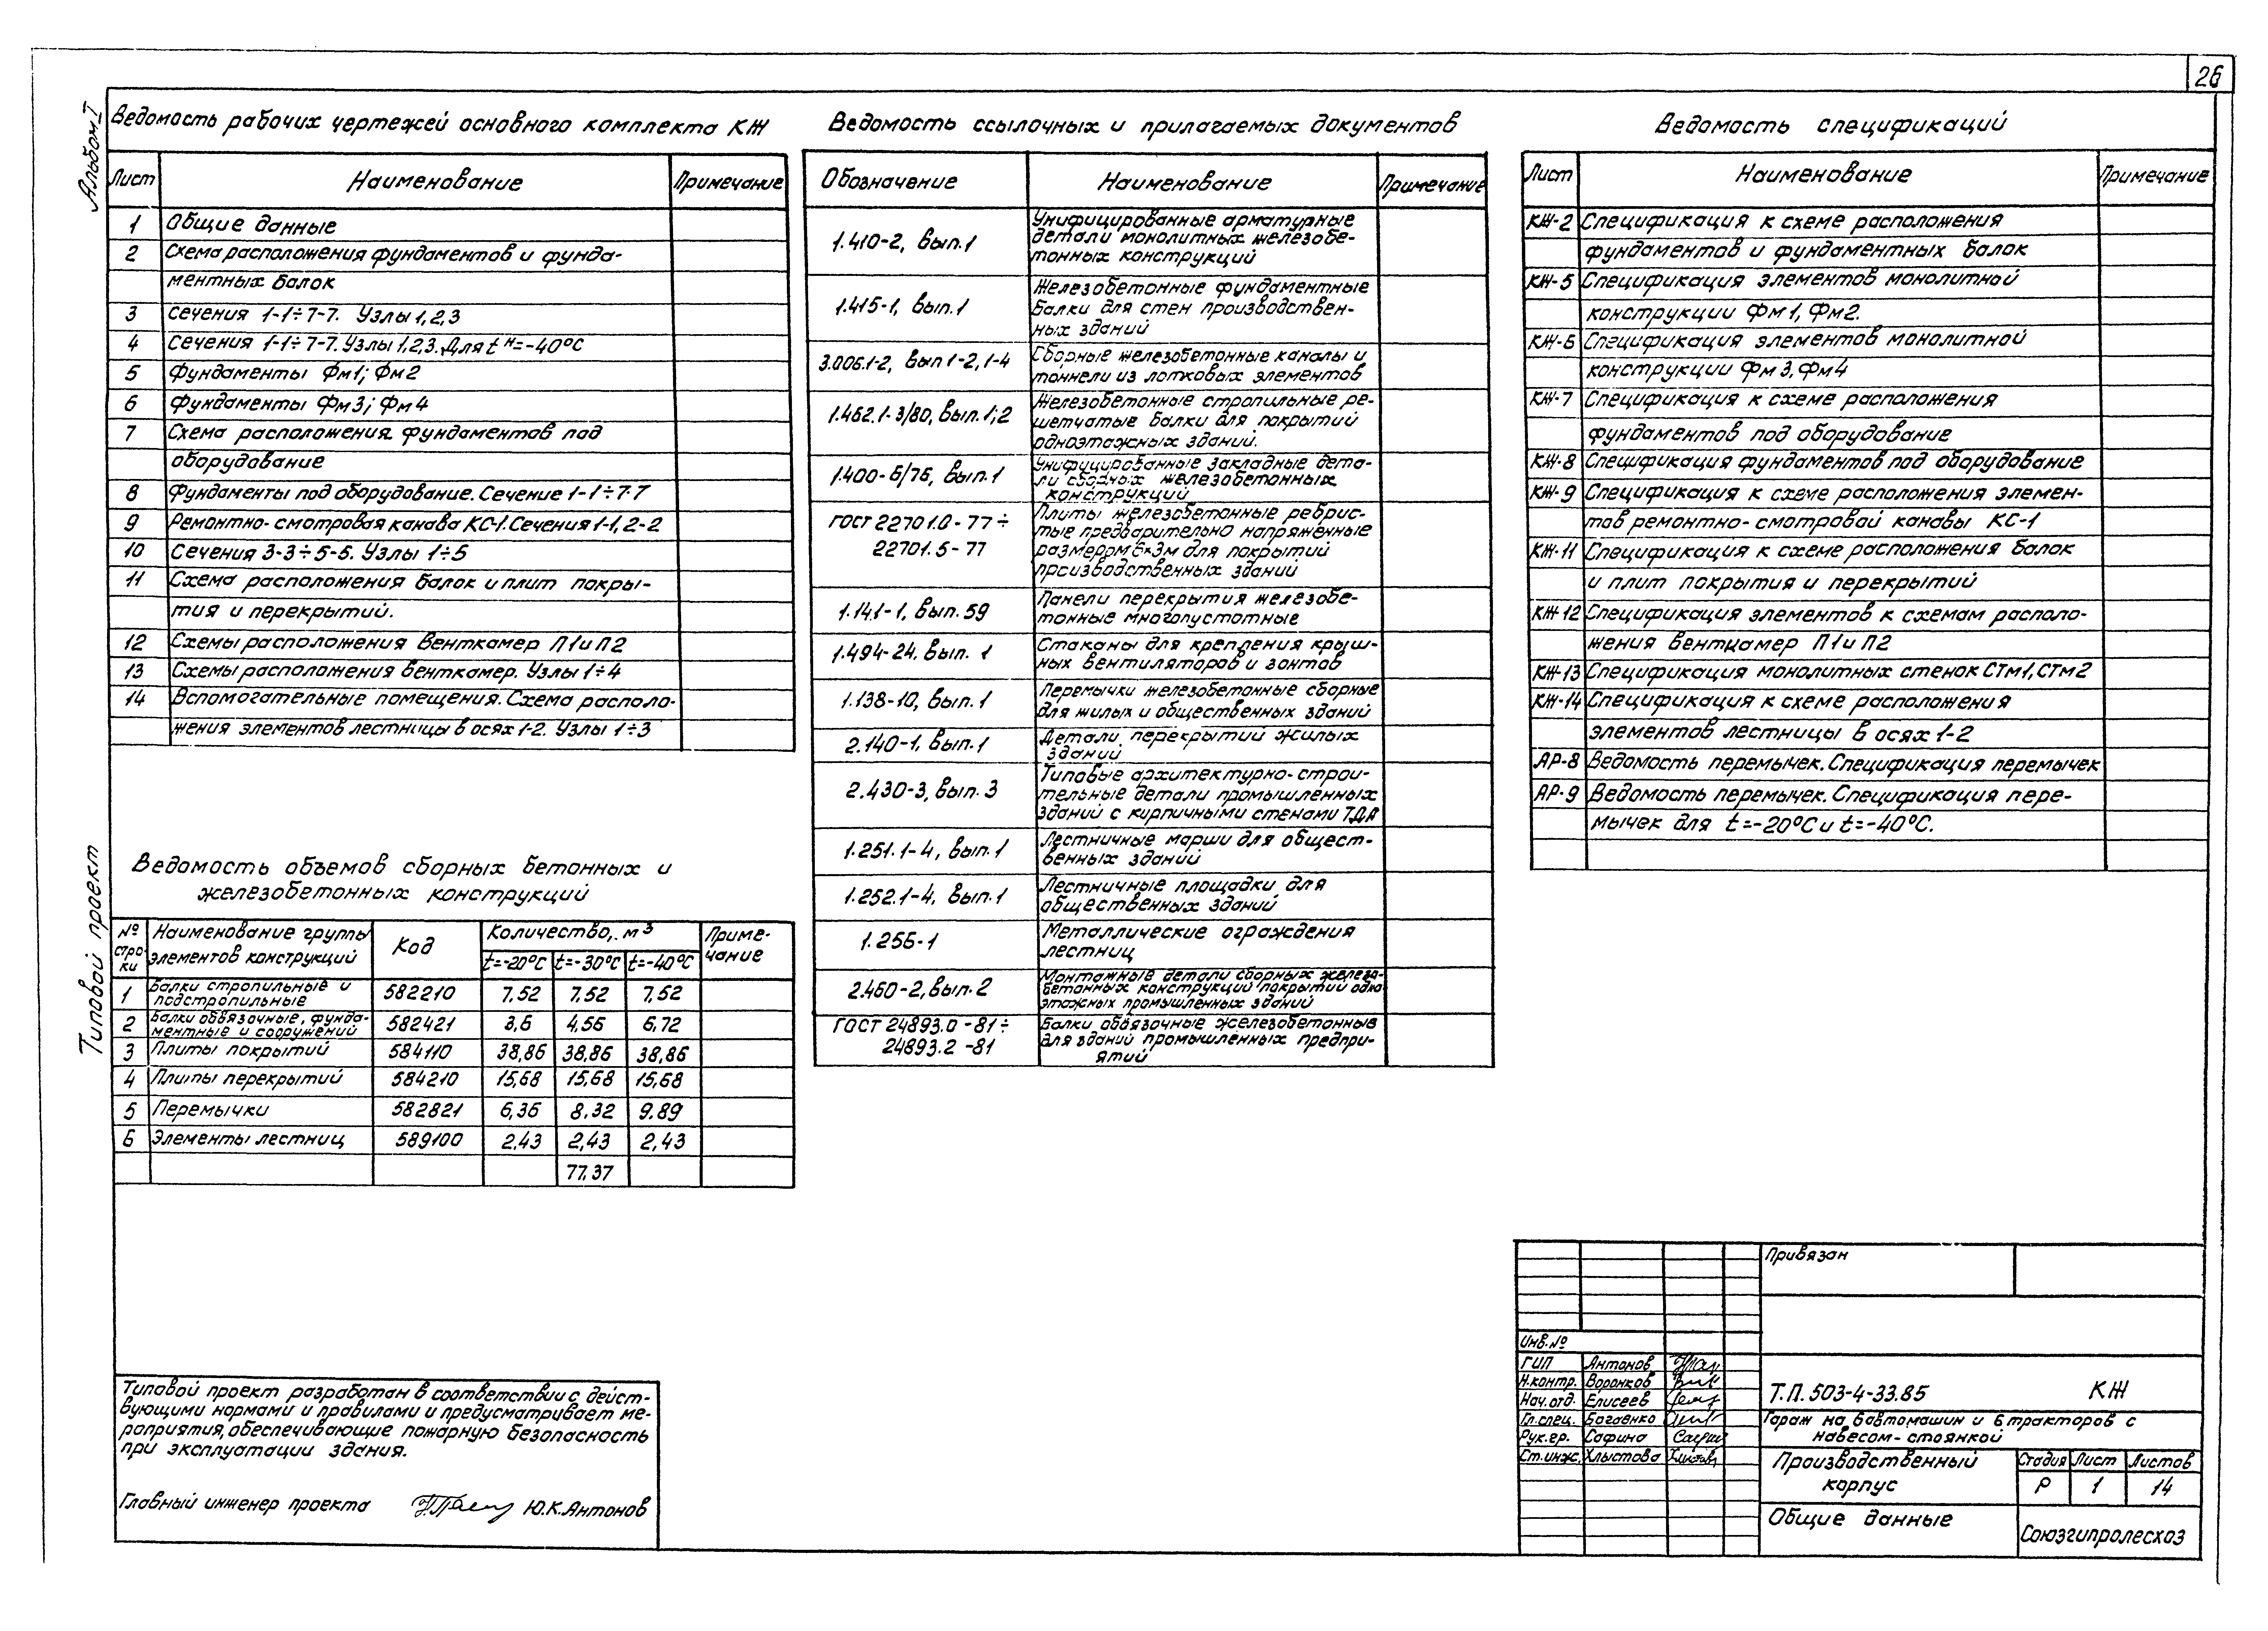 26
Альбом I
Типовой проект
Ведомость рабочих чертежей основного комплекта КЖ
Лист Наименование Примечание
1 Общие данные
2 Схема расположения фундаментов и фунда-
ментных балок
3 Сечения 1-1÷7-7. Узлы 1,2,3
4 Сечения 1-1÷7-7. Узлы 1,2,3. Для tн=-40°С
5 Фундаменты Фм1; Фм2
6 Фундаменты Фм3; Фм4
7 Схема расположения фундаментов под
оборудование
8 Фундаменты под оборудование. Сечение 1-1÷7-7
9 Ремонтно-смотровая канава КС-1. Сечения 1-1, 2-2
10 Сечения 3-3÷5-5. Узлы 1÷5
11 Схема расположения балок и плит покры-
тия и перекрытий.
12 Схемы расположения Венткамер П1 и П2
13 Схемы расположения венткамер. Узлы 1÷4
14 Вспомогательные помещения. Схема располо-
жения элементов лестницы в осях 1-2. Узлы 1÷3
Ведомость объемов сборных бетонных и
железобетонных конструкций
№ стро-ки Наименование группы элементов конструкций Код Количество, м³ Приме-чание
t=-20°С t=-30°С t=-40°С
1 Балки стропильные и подстропильные 582210 7,52 7,52 7,52
2 Балки обвязочные, фунда-ментные и сооружений 582421 3,6 4,56 6,72
3 Плиты покрытий 584110 38,86 38,86 38,86
4 Плиты перекрытий 584210 15,68 15,68 15,68
5 Перемычки 582821 6,36 8.32 9.89
6 Элементы лестниц 589100 2,43 2,43 2,43
77,37
Типовой проект разработан в соответствии с дейст-
вующими нормами и правилами и предусматривает ме-
роприятия, обеспечивающие пожарную безопасность
при эксплуатации здания.
Главный инженер проекта Ю.К.Антонов
Ведомость ссылочных и прилагаемых документов
Обозначение Наименование Примечание
1.410-2, вып.1 Унифицированные арматурные
детали монолитных железобе-
тонных конструкций
1.415-1, вып.1 Железобетонные фундаментные
балки для стен производствен-
ных зданий
3.006.1-2, вып 1-2, 1-4 Сборные железобетонные каналы и
тоннели из лотковых элементов
1.462.1-3/80, вып.1;2 Железобетонные стропильные ре-
шетчатые балки для покрытий
одноэтажных зданий.
1.400-6/76, вып.1 Унифуцированные закладные дета-
ли сборных железобетонных
конструкций
ГОСТ 22701.0-77÷ 22701.5-77 Плиты железобетонные ребрис-
тые предварительно напряженные
размером 6×3м для покрытий
производственных зданий
1.141-1, вып.59 Панели перекрытия железобе-
тонные многопустотные
1.494-24, вып. 1 Стаканы для крепления крыш-
ных вентиляторов и зонтов
1.138-10, вып.1 Перемычки железобетонные сборные
для жилых и общественных зданий
2.140-1, вып.1 Детали перекрытий жилых
зданий
2.430-3, вып.3 Типовые архитектурно-строи-
тельные детали промышленных
зданий с кирпичными стенами ТДА
1.251.1-4, вып.1 Лестничные марши для общест-
венных зданий
1.252.1-4, вып.1 Лестничные площадки для
общественных зданий
1.256-1 Металлические ограждения
лестниц
2.460-2, вып.2 Монтажные детали сборных железо-
бетонных конструкций покрытий одно-
этажных промышленных зданий
ГОСТ 24893.0-81÷ 24893.2-81 Балки обвязочные железобетонные
для зданий промышленных предпри-
ятий
Ведомость спецификаций
Лист Наименование Примечание
КЖ-2 Спецификация к схеме расположения
фундаментов и фундаментных балок
КЖ-5 Спецификация элементов монолитной
конструкции Фм1, Фм2.
КЖ-6 Спецификация элементов монолитной
конструкции Фм3, Фм4
КЖ-7 Спецификация к схеме расположения
фундаментов под оборудование
КЖ-8 Спецификация фундаментов под оборудование
КЖ-9 Спецификация к схеме расположения элемен-
тов ремонтно-смотровой канавы КС-1
КЖ-11 Спецификация к схеме расположения балок
и плит покрытия и перекрытий
КЖ-12 Спецификация элементов к схемам располо-
жения венткамер П1 и П2
КЖ-13 Спецификация монолитных стенок СТм1, СТм2
КЖ-14 Спецификация к схеме расположения
элементов лестницы в осях 1-2
АР-8 Ведомость перемычек. Спецификация перемычек
АР-9 Ведомость перемычек. Спецификация пере-
мычек для t=-20°С и t=-40°С.
Привязан
Инв.№
ГИП Антонов
Н.контр. Воронков
Нач.отд. Елисеев
Гл.спец. Багаенко
Рук.гр. Сафина
Ст.инж. Хлыстова
Т.П. 503-4-33.85 КЖ
Гараж на 6 автомашин и 6 тракторов с
навесом-стоянкой
Производственный
корпус
Стадия Лист Листов
Р 1 14
Общие данные
Союзгипролесхоз